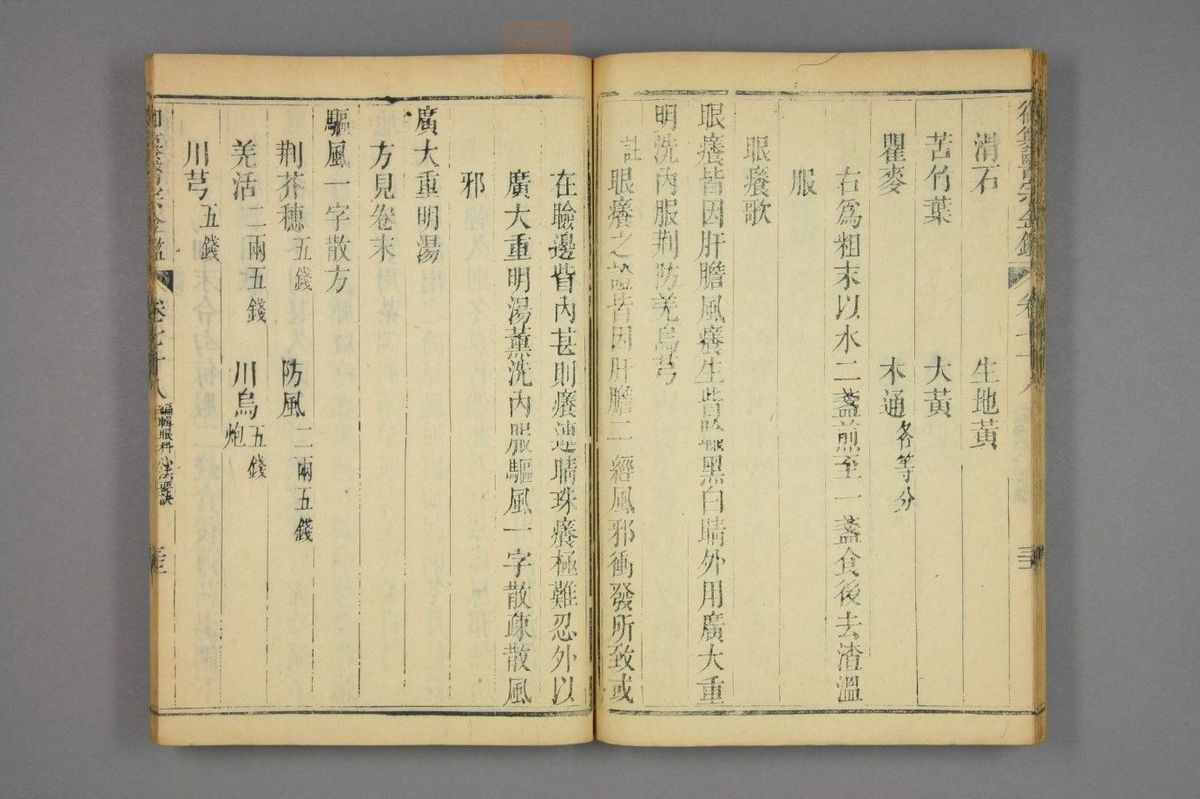 滑石 生地黃
苦竹葉 大黃
瞿麥 木通各等分
右爲粗末以水二盞煎至一盞食後去渣溫
服
眼癢歌
眼癢皆因肝膽風癢生眥瞼黑白睛外用廣大重
明洗內服荆防羌烏芎
註眼癢之皆因肝膽二經風邪衝發所致或
在瞼邊眥內甚則癢連睛珠癢極難忍外以
廣大重明湯薰洗內服驅風一字散疎散風
邪
廣大重明湯
方見卷末
驅風一字散方
荆芥穗五錢 防風二兩五錢
羌活二兩五錢 川烏炮五錢
川芎五錢
卷七十八 編輯眼科心法要訣